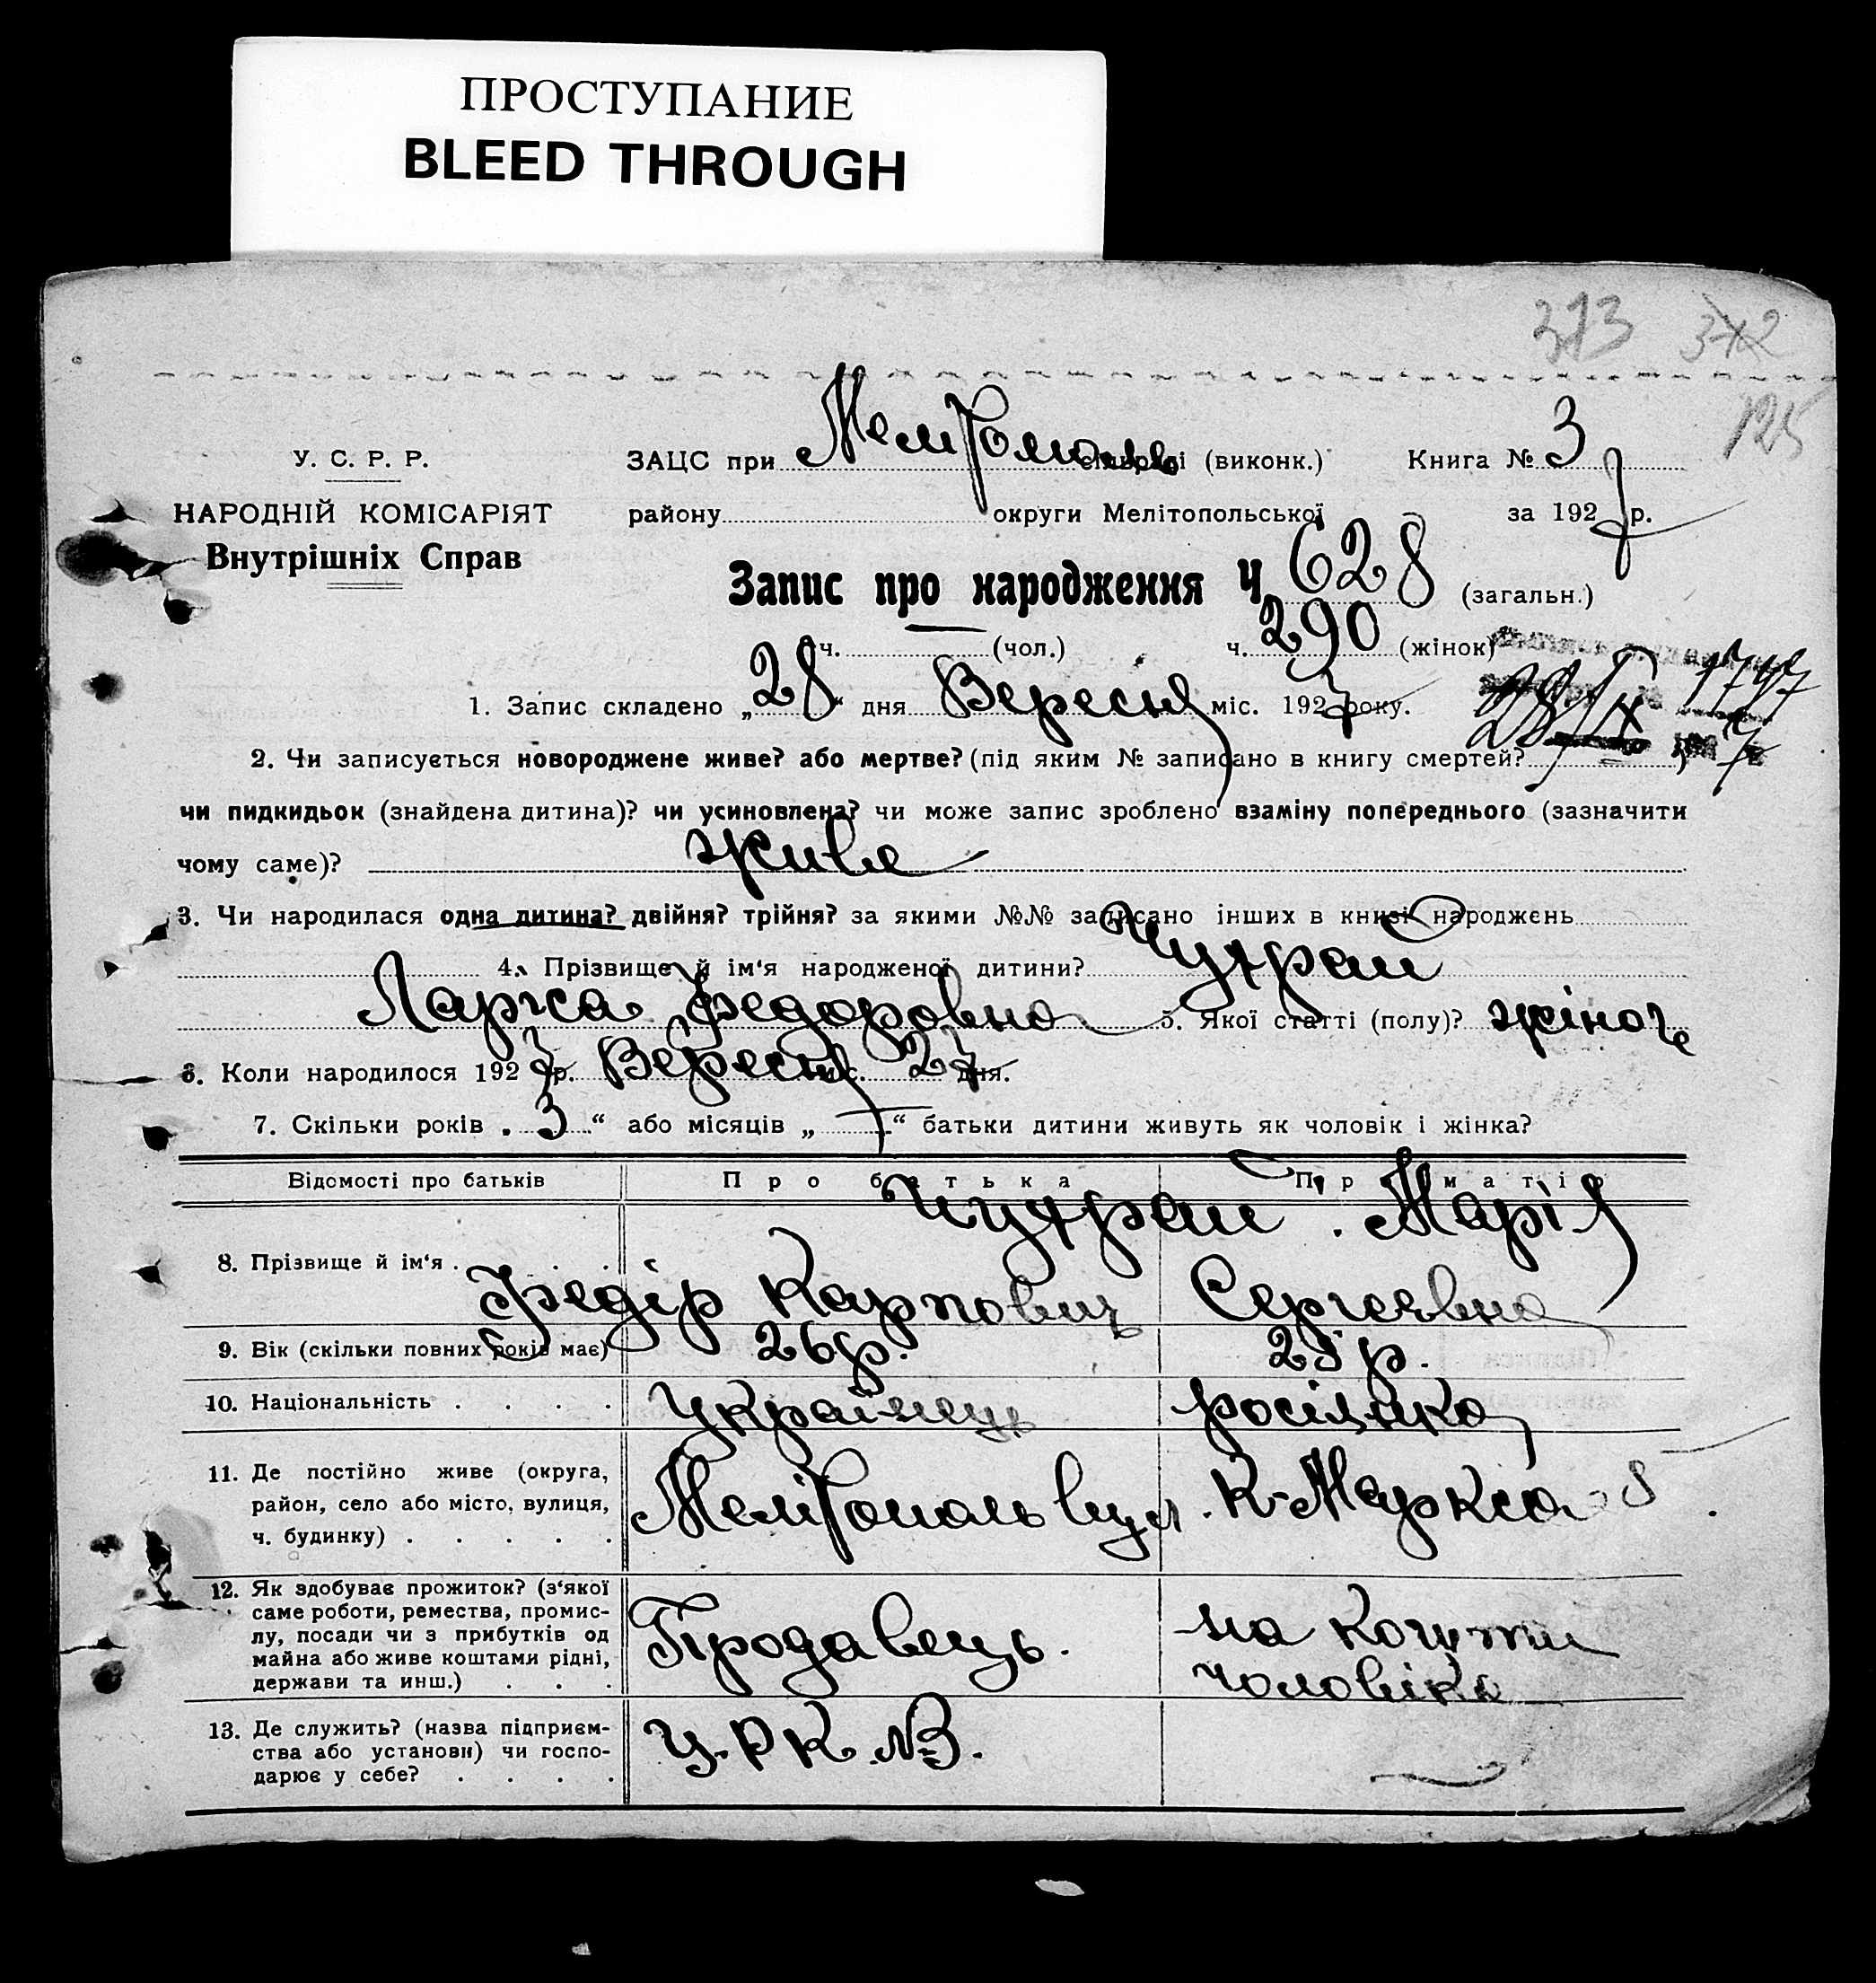 ПРОСТУПАНИЕ
BLEED THROUGH
313 342
125
У. С. Р. Р.
НАРОДНІЙ КОМІСАРІЯТ
Внутрішніх Справ
ЗАЦС при Мелітополь сільраді (виконк.) Книга № 3
району округи Мелітопольської за 1927 р.
Запис про народження Ч. 628 (загальн.)
ч. (чол.) ч. 290 (жінок)
1. Запис складено „28“ дня Вересня міс. 1927 року.
28/IX 1747
2. Чи записується новороджене живе? або мертве? (під яким № записано в книгу смертей? )
чи пидкидьок (знайдена дитина)? чи усиновлена? чи може запис зроблено взаміну попереднього (зазначити
чому саме)? живе
3. Чи народилася одна дитина? двійня? трійня? за якими №№ записано інших в книзі народжень
4. Прізвище й ім‘я народженої дитини? Чухрай
Лариса Федоровна 5. Якої статті (полу)? жіноче
6. Коли народилося 1927 р. Вересня міс. 27 дня.
7. Скільки років „3“ або місяців „ “ батьки дитини живуть як чоловік і жінка?
Відомості про батьків Про батька Про матір
8. Прізвище й ім‘я . . . . Чухрай Марія
Федір Карпович Сергеевна
9. Вік (скільки повних років має) 26 р. 25 р.
10. Національність . . . . Українець росіянка
11. Де постійно живе (округа,
район, село або місто, вулиця,
ч. будинку) . . . . .
Мелітополь вул. К-Маркса 8
12. Як здобуває прожиток? (з‘якої
саме роботи, ремества, промис-
лу, посади чи з прибутків од
майна або живе коштами рідні,
держави та инш.) . . .
Продавець.
на кошти
чоловіка
13. Де служить? (назва підприєм-
ства або установи) чи госпо-
дарює у себе? . . . .
Ц.Р.К. №3.